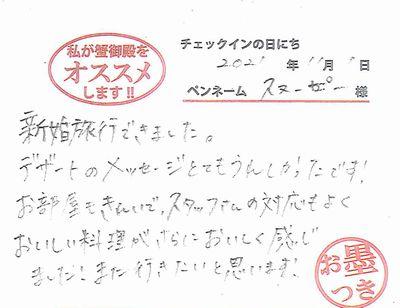 私が蟹御殿を
オススメ
します!!
チェックインの日にち
2021年11月1日
ペンネーム スヌーピー 様
新婚旅行できました。
デザートのメッセージとてもうれしかったです!
お部屋もきれいで、スタッフさんの対応もよく
おいしい料理がさらにおいしく感じ
ました!また行きたいと思います!
お墨つき